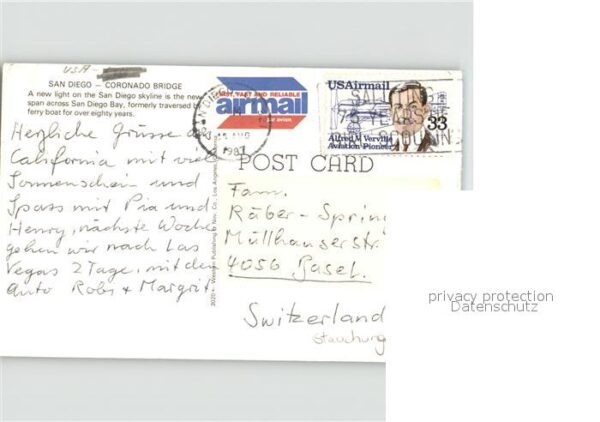 USA-
SAN DIEGO — CORONADO BRIDGE
A new light on the San Diego skyline is the new
span across San Diego Bay, formerly traversed by
ferry boat for over eighty years.
FAST, FAST AND RELIABLE
airmail
par avion
USAirmail
33
Alfred V. Verville
Aviation Pioneer
75 YEARS
AUG
198
POST CARD
Herzliche Grüsse
California mit viel
Sonnenschein und
Spass mit Pia und
Henry, nächste Woche
gehen wir nach Las
Vegas 2 Tage, mit dem
Auto Robi + Margrit
Western Publishing & Nov. Co., Los Angeles
Fam.
Räber - Spring
Müllhauserstr
4056 Basel.
Switzerland
Stauchung
privacy protection
Datenschutz